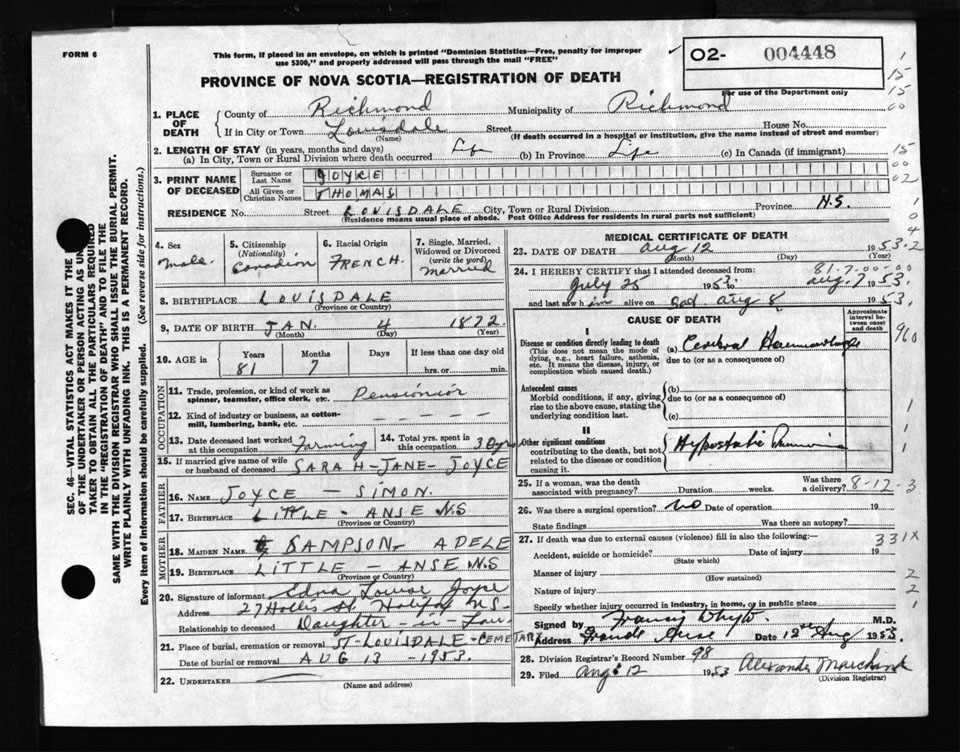 FORM 6
This form, if placed in an envelope, on which is printed "Dominion Statistics—Free, penalty for improper
use $300," and properly addressed will pass through the mail "FREE"
02- 004448
PROVINCE OF NOVA SCOTIA—REGISTRATION OF DEATH
For use of the Department only
1. PLACE OF DEATH County of Richmond Municipality of Richmond
If in City or Town Louisdale Street House No.
(Name) (If death occurred in a hospital or institution, give the name instead of street and number)
2. LENGTH OF STAY (in years, months and days)
(a) In City, Town or Rural Division where death occurred Life (b) In Province Life (c) In Canada (if immigrant)
3. PRINT NAME OF DECEASED Surname or Last Name JOYCE
All Given or Christian Names THOMAS
RESIDENCE No. Street LOUISDALE City, Town or Rural Division Province N.S.
(Residence means usual place of abode. Post Office Address for residents in rural parts not sufficient)
4. Sex Male.
5. Citizenship (Nationality) Canadian
6. Racial Origin FRENCH.
7. Single, Married, Widowed or Divorced (write the word) Married
8. BIRTHPLACE LOUISDALE
(Province or Country)
9. DATE OF BIRTH JAN. 4 1872
(Month) (Day) (Year)
10. AGE in Years Months Days If less than one day old
81 7 hrs. or min.
OCCUPATION
11. Trade, profession, or kind of work as spinner, teamster, office clerk, etc. Pensionior
12. Kind of industry or business, as cotton-mill, lumbering, bank, etc. — — —
13. Date deceased last worked at this occupation Farming 14. Total yrs. spent in this occupation 30 yrs
15. If married give name of wife or husband of deceased SARAH-JANE-JOYCE
FATHER
16. NAME JOYCE — SIMON.
17. BIRTHPLACE LITTLE - ANSE N.S
(Province or Country)
MOTHER
18. MAIDEN NAME SAMPSON, ADELE
19. BIRTHPLACE LITTLE — ANSE N.S
(Province or Country)
20. Signature of informant Edna Louise Joyce
Address 27 Hollis St. Halifax N.S.
Relationship to deceased Daughter-in-Law
21. Place of burial, cremation or removal ST-LOUISDALE-CEMETARY
Date of burial or removal AUG 13 - 1953.
22. UNDERTAKER
(Name and address)
MEDICAL CERTIFICATE OF DEATH
23. DATE OF DEATH Aug 12 1953.
(Month) (Day) (Year)
81-7-00-00
24. I HEREBY CERTIFY that I attended deceased from:
July 25 1953 to Aug. 7 1953.
and last saw him alive on Aug 8 1953.
CAUSE OF DEATH
Approximate interval between onset and death
I
Disease or condition directly leading to death (a) Cerebral Haemorrhage
(This does not mean the mode of dying, e.g., heart failure, asthenia, etc. It means the disease, injury, or complication which caused death.)
due to (or as a consequence of)
Antecedent causes (b)
Morbid conditions, if any, giving rise to the above cause, stating the underlying condition last.
due to (or as a consequence of)
(c)
II
Other significant conditions contributing to the death, but not related to the disease or condition causing it. Hypostatic Pneumonia
25. If a woman, was the death associated with pregnancy? Duration weeks. Was there a delivery? 8-12-3
26. Was there a surgical operation? No Date of operation 19
State findings Was there an autopsy?
27. If death was due to external causes (violence) fill in also the following:— 331X
Accident, suicide or homicide? Date of injury 19
(State which)
Manner of injury
(How sustained)
Nature of injury
Specify whether injury occurred in industry, in home, or in public place
Signed by Francis Whyte M.D.
Address Grande Anse Date 12th Aug 1953.
28. Division Registrar's Record Number 98
29. Filed Aug: 12 1953 Alexander
(Division Registrar)
SEC. 46—VITAL STATISTICS ACT MAKES IT THE
OF THE UNDERTAKER OR PERSON ACTING AS UN
TAKER TO OBTAIN ALL THE PARTICULARS REQUIRED
IN THE "REGISTRATION OF DEATH" AND TO FILE THE
SAME WITH THE DIVISION REGISTRAR WHO SHALL ISSUE THE BURIAL PERMIT.
WRITE PLAINLY WITH UNFADING INK. THIS IS A PERMANENT RECORD.
Every item of information should be carefully supplied. (See reverse side for instructions.)
1
15
15
00
15
00
02
1
0
4
2
910
1
1
1
2
2
1